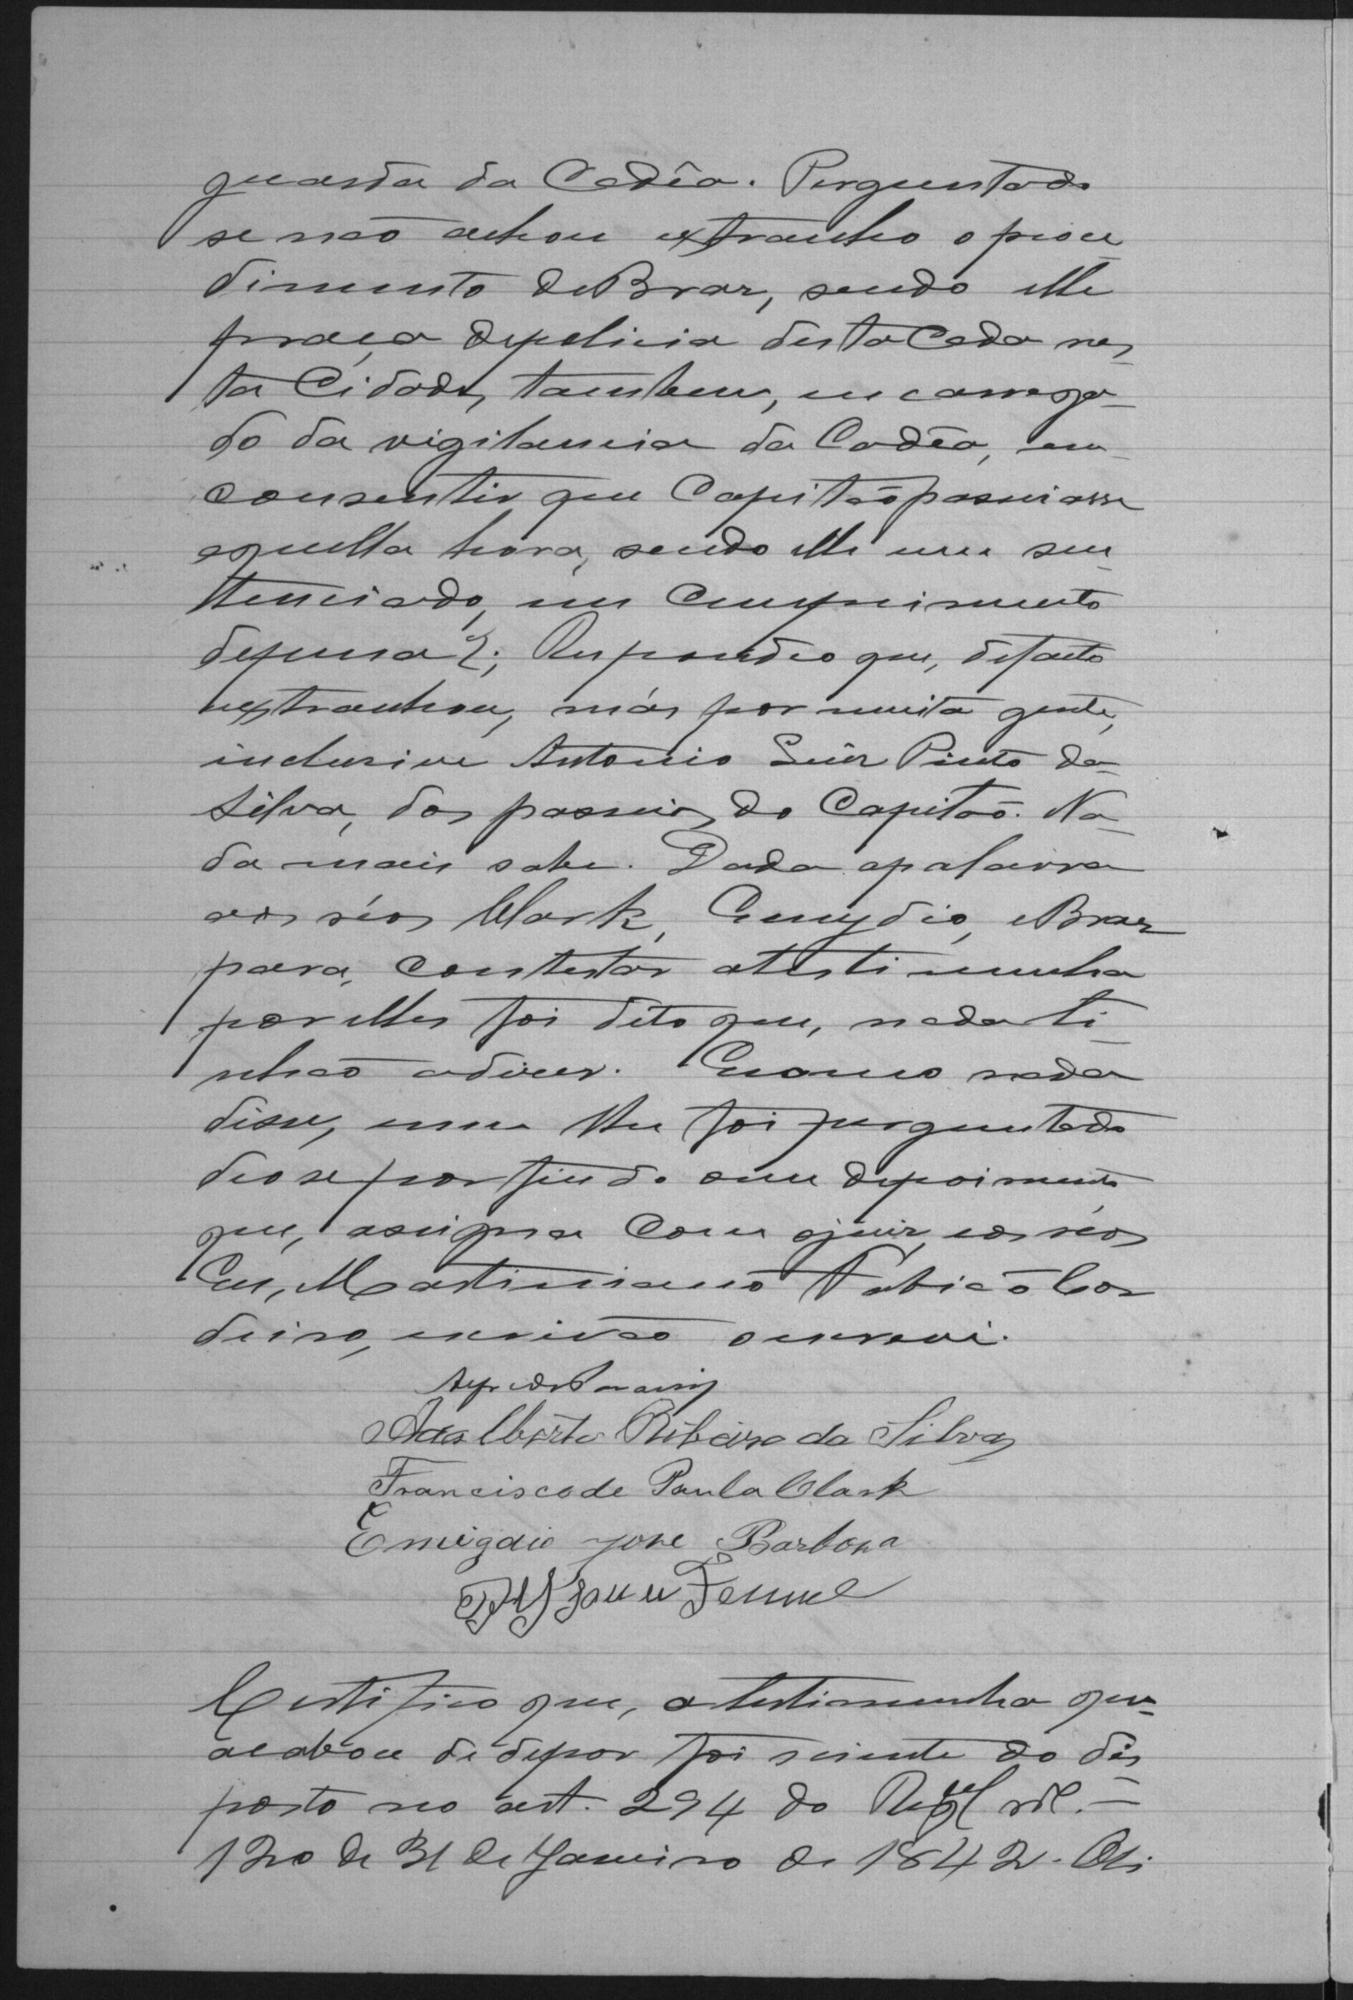 guarda da Cadêa. Perguntado
se não achou extranho o proce
dimento de Braz, sendo elle
praça de policia destacada nes
ta Cidade, tambem, encarrega-
do da vigilancia da Cadêa, em
consentir que Capitão passeiasse
aquella hora, sendo elle um sen
tenciado, em cumprimento
de pena?; Respondeo que, de facto
extranhou, más por muita gente,
inclusive Antonio Luiz Pinto da
Silva, dos passeios do Capitão. Na-
da mais sabe. Dada a palavra
aos réos Clark, Emydio, e Braz
para, contestar a testimunha
por elles foi dito que, nada ti-
nhão a dizer. E como nada
disse, nem lhe foi perguntado
deo se por findo o seu depoimento
que, assigna com o juiz, e os réos
Eu, Martiniano Fabião Cor
deiro, escrivão o escrevi.
Adalberto Ribeiro da Silva
Francisco de Paula Clark
Emigdio Jose Barbosa
Certifico que, a testimunha que
acabou de depor foi sciente do dis
posto no art. 294 do Regul nº.
120 de 31 de Janeiro de 1842.